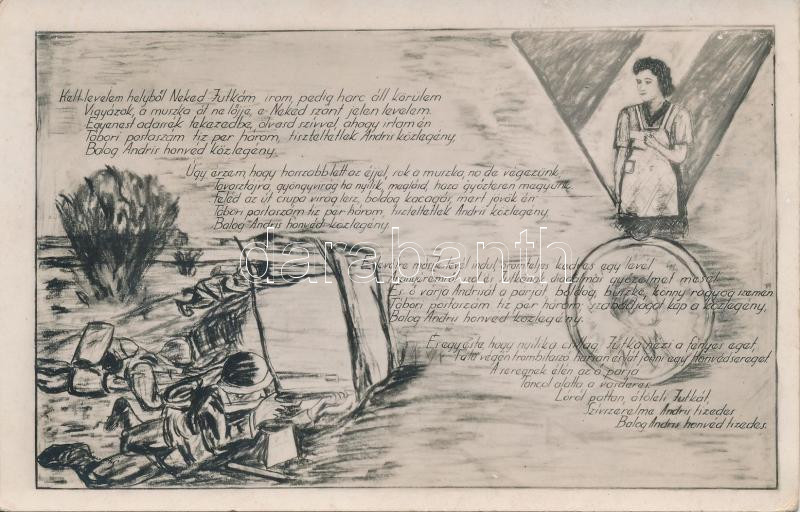 Kelt levelem helyből Neked Jutkám, írom, pedig harc áll körülem
Vigyázok, a muszka öl ne lőjje, e Neked szánt jelen levelem.
Egyenest adassék fekezedbe, olvasd szívvel ahogy írtam én
Tábori postaszám tíz per három, tiszteltetlek Andris közlegény,
Balog Andris honvéd közlegény.
Úgy érzem, hogy hosszabb lett az éjjel, sok a muszka, no de végezünk,
Tavasztájra, gyöngyvirág ha nyílik, meglásd, haza győztesen megyünk.
Feléd az út csupa virág lesz, boldog kacagás, mert jövök én
Tábori postaszám tíz per három, tiszteltetlek Andris közlegény,
Balog Andris honvéd közlegény.
E levélre másik levél indul, örömteljes kedves egy levél
az ő várja Andrisát a párját, boldog, büszke, könny ragyog szemén
Tábori postaszám tíz per három, szabadságot kap a közlegény,
Balog Andris honvéd közlegény.
És egy este, hogy nyílik a csillag, Jutka nézi a fényes eget,
Falu végén trombitaszó harsan és lát jönni egy honvédsereget.
A seregnek élén az ő párja
Táncol alatta a
Lóról pattan, átöleli Jutkát,
Szívszerelme Andris tizedes
Balog Andris honvéd tizedes.
darabanth.com